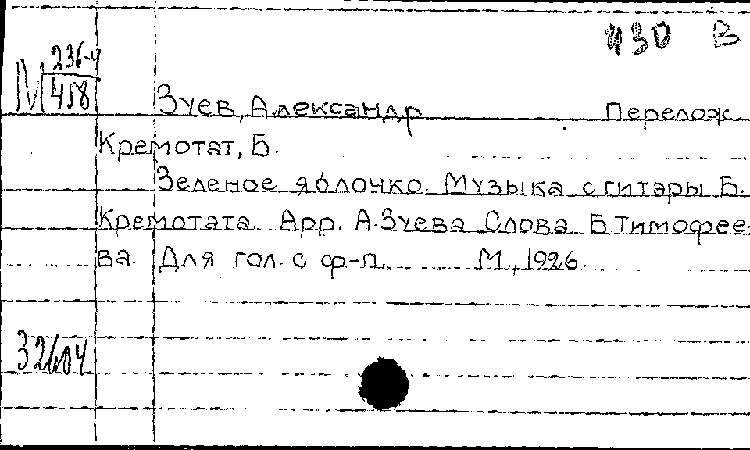 430 В
М 236-4
458
Зуев, Александр Перелож.
Кремотат, Б.
Зеленое яблочко. Музыка с гитары Б.
Кремотата. Арр. А. Зуева Слова Б. Тимофее-
ва. Для гол. с ф-п. М., 1926.
32604